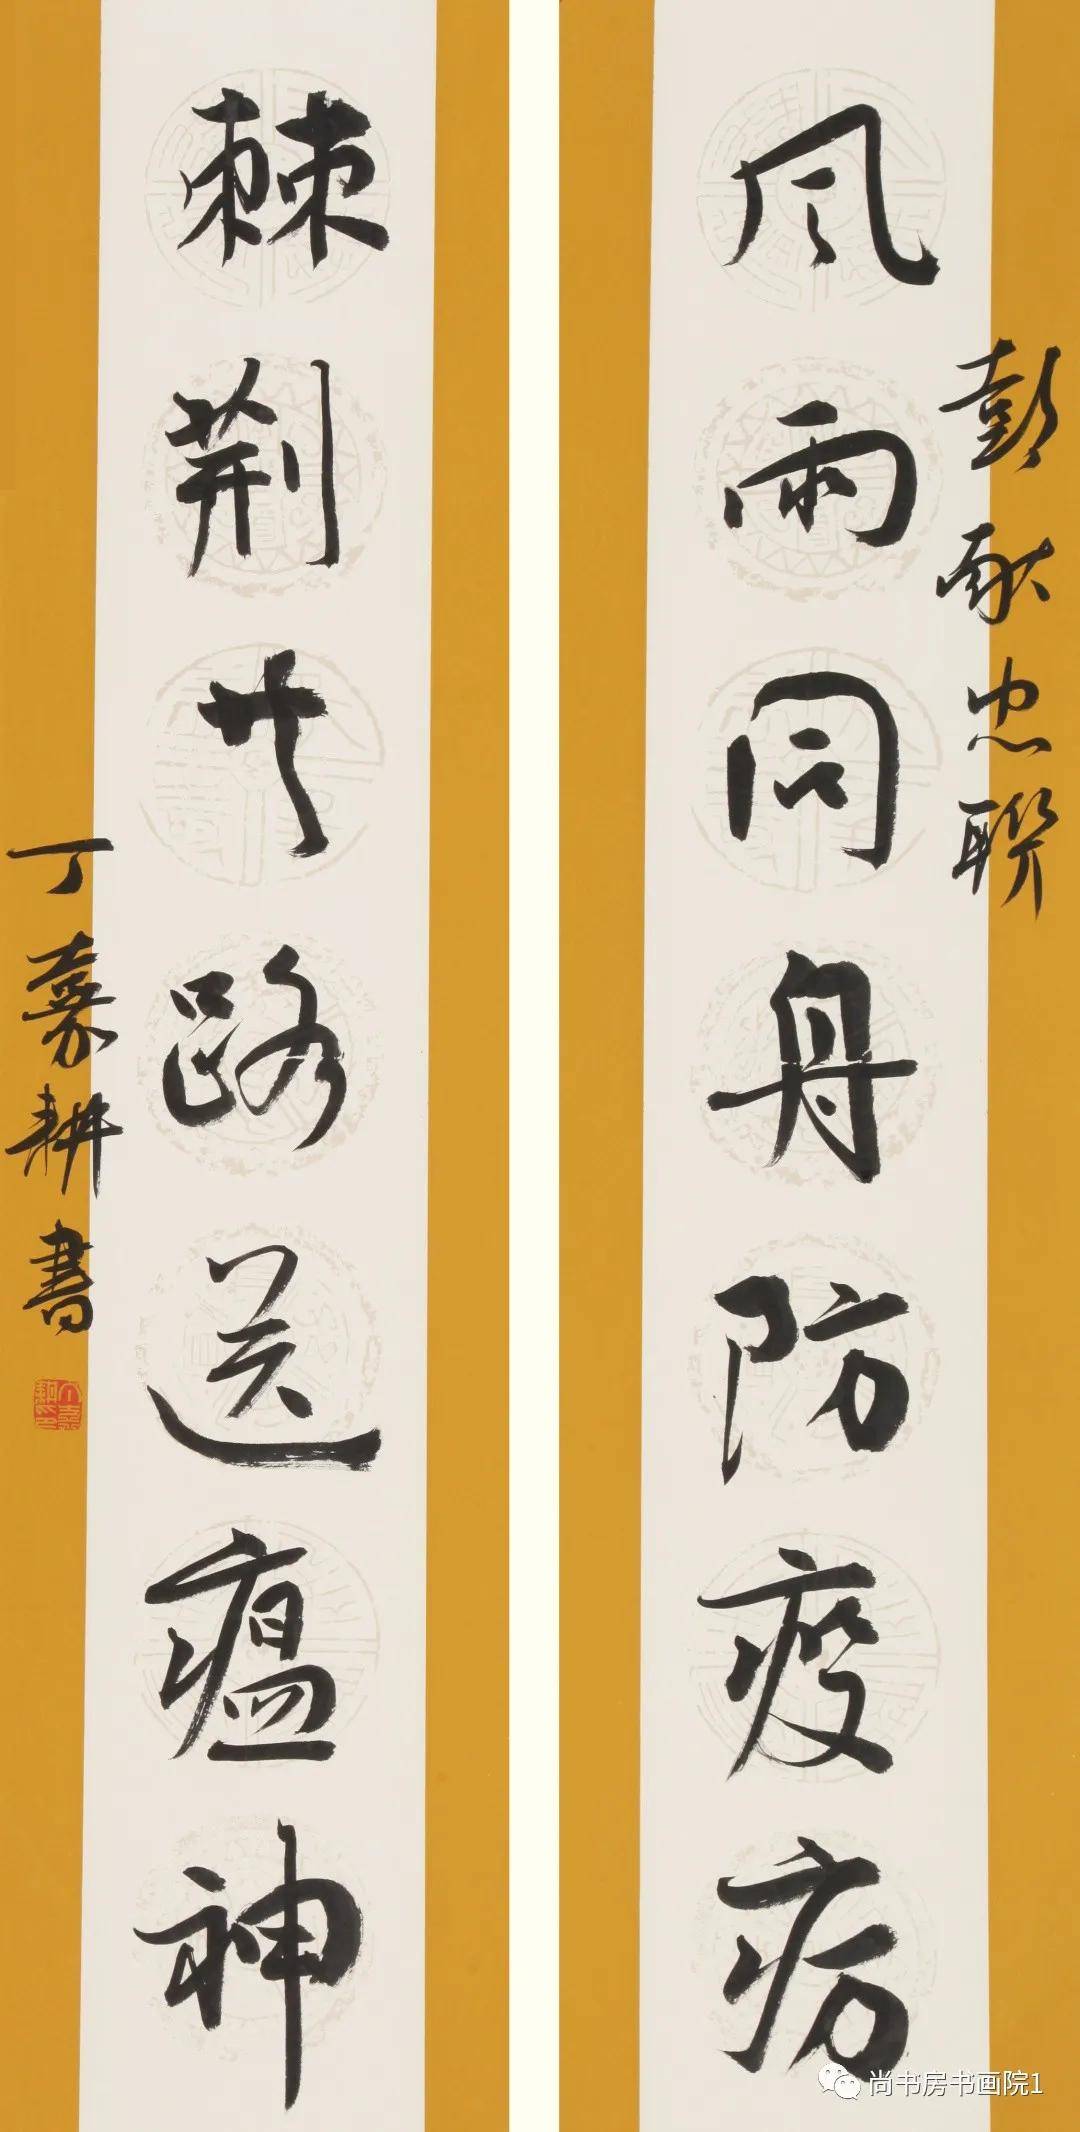 風雨同舟防疫疠
彭耿忠聯
棘荆共路送瘟神
丁嘉耕書
尚书房书画院1